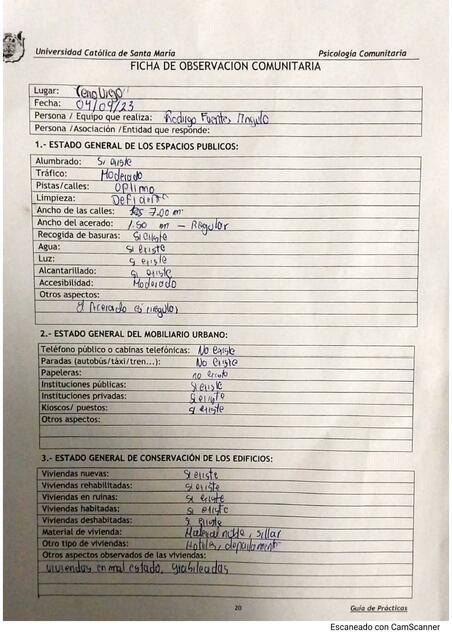 Universidad Católica de Santa María Psicología Comunitaria
FICHA DE OBSERVACION COMUNITARIA
Lugar: "Cerro Viejo"
Fecha: 04/09/23
Persona / Equipo que realiza: Rodrigo Fuentes Angulo
Persona /Asociación /Entidad que responde:
1.- ESTADO GENERAL DE LOS ESPACIOS PUBLICOS:
Alumbrado: Si existe
Tráfico: Moderado
Pistas/calles: OPtimo
Limpieza: Deficiente
Ancho de las calles: 7.00 m
Ancho del acerado: 1.50 m — Regular
Recogida de basuras: Si existe
Agua: si existe
Luz: si existe
Alcantarillado: si existe
Accesibilidad: Moderado
Otros aspectos:
El Acerado es regular
2.- ESTADO GENERAL DEL MOBILIARIO URBANO:
Teléfono público o cabinas telefónicas: No existe
Paradas (autobús/táxi/tren...): No existe
Papeleras: no existe
Instituciones públicas: Si existe
Instituciones privadas: Si existe
Kioscos/ puestos: si existe
Otros aspectos:
3.- ESTADO GENERAL DE CONSERVACIÓN DE LOS EDIFICIOS:
Viviendas nuevas: Si existe
Viviendas rehabilitadas: Si existe
Viviendas en ruinas: Si existe
Viviendas habitadas: si existe
Viviendas deshabitadas: Si existe
Material de vivienda: Material noble, sillar
Otro tipo de viviendas: Hoteles, departamento
Otros aspectos observados de las viviendas:
viviendas en mal estado,
20 Guía de Prácticas
Escaneado con CamScanner